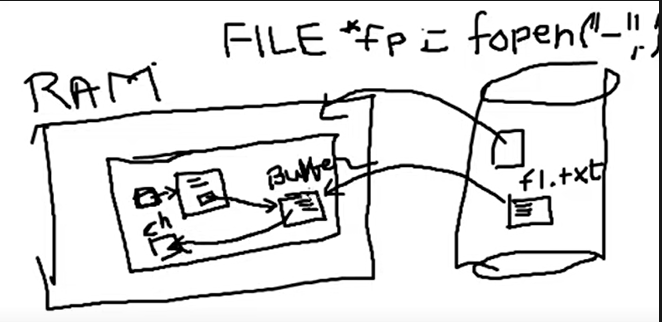 FILE *fp = fopen("-",
RAM
Buffe
f1.txt
ch